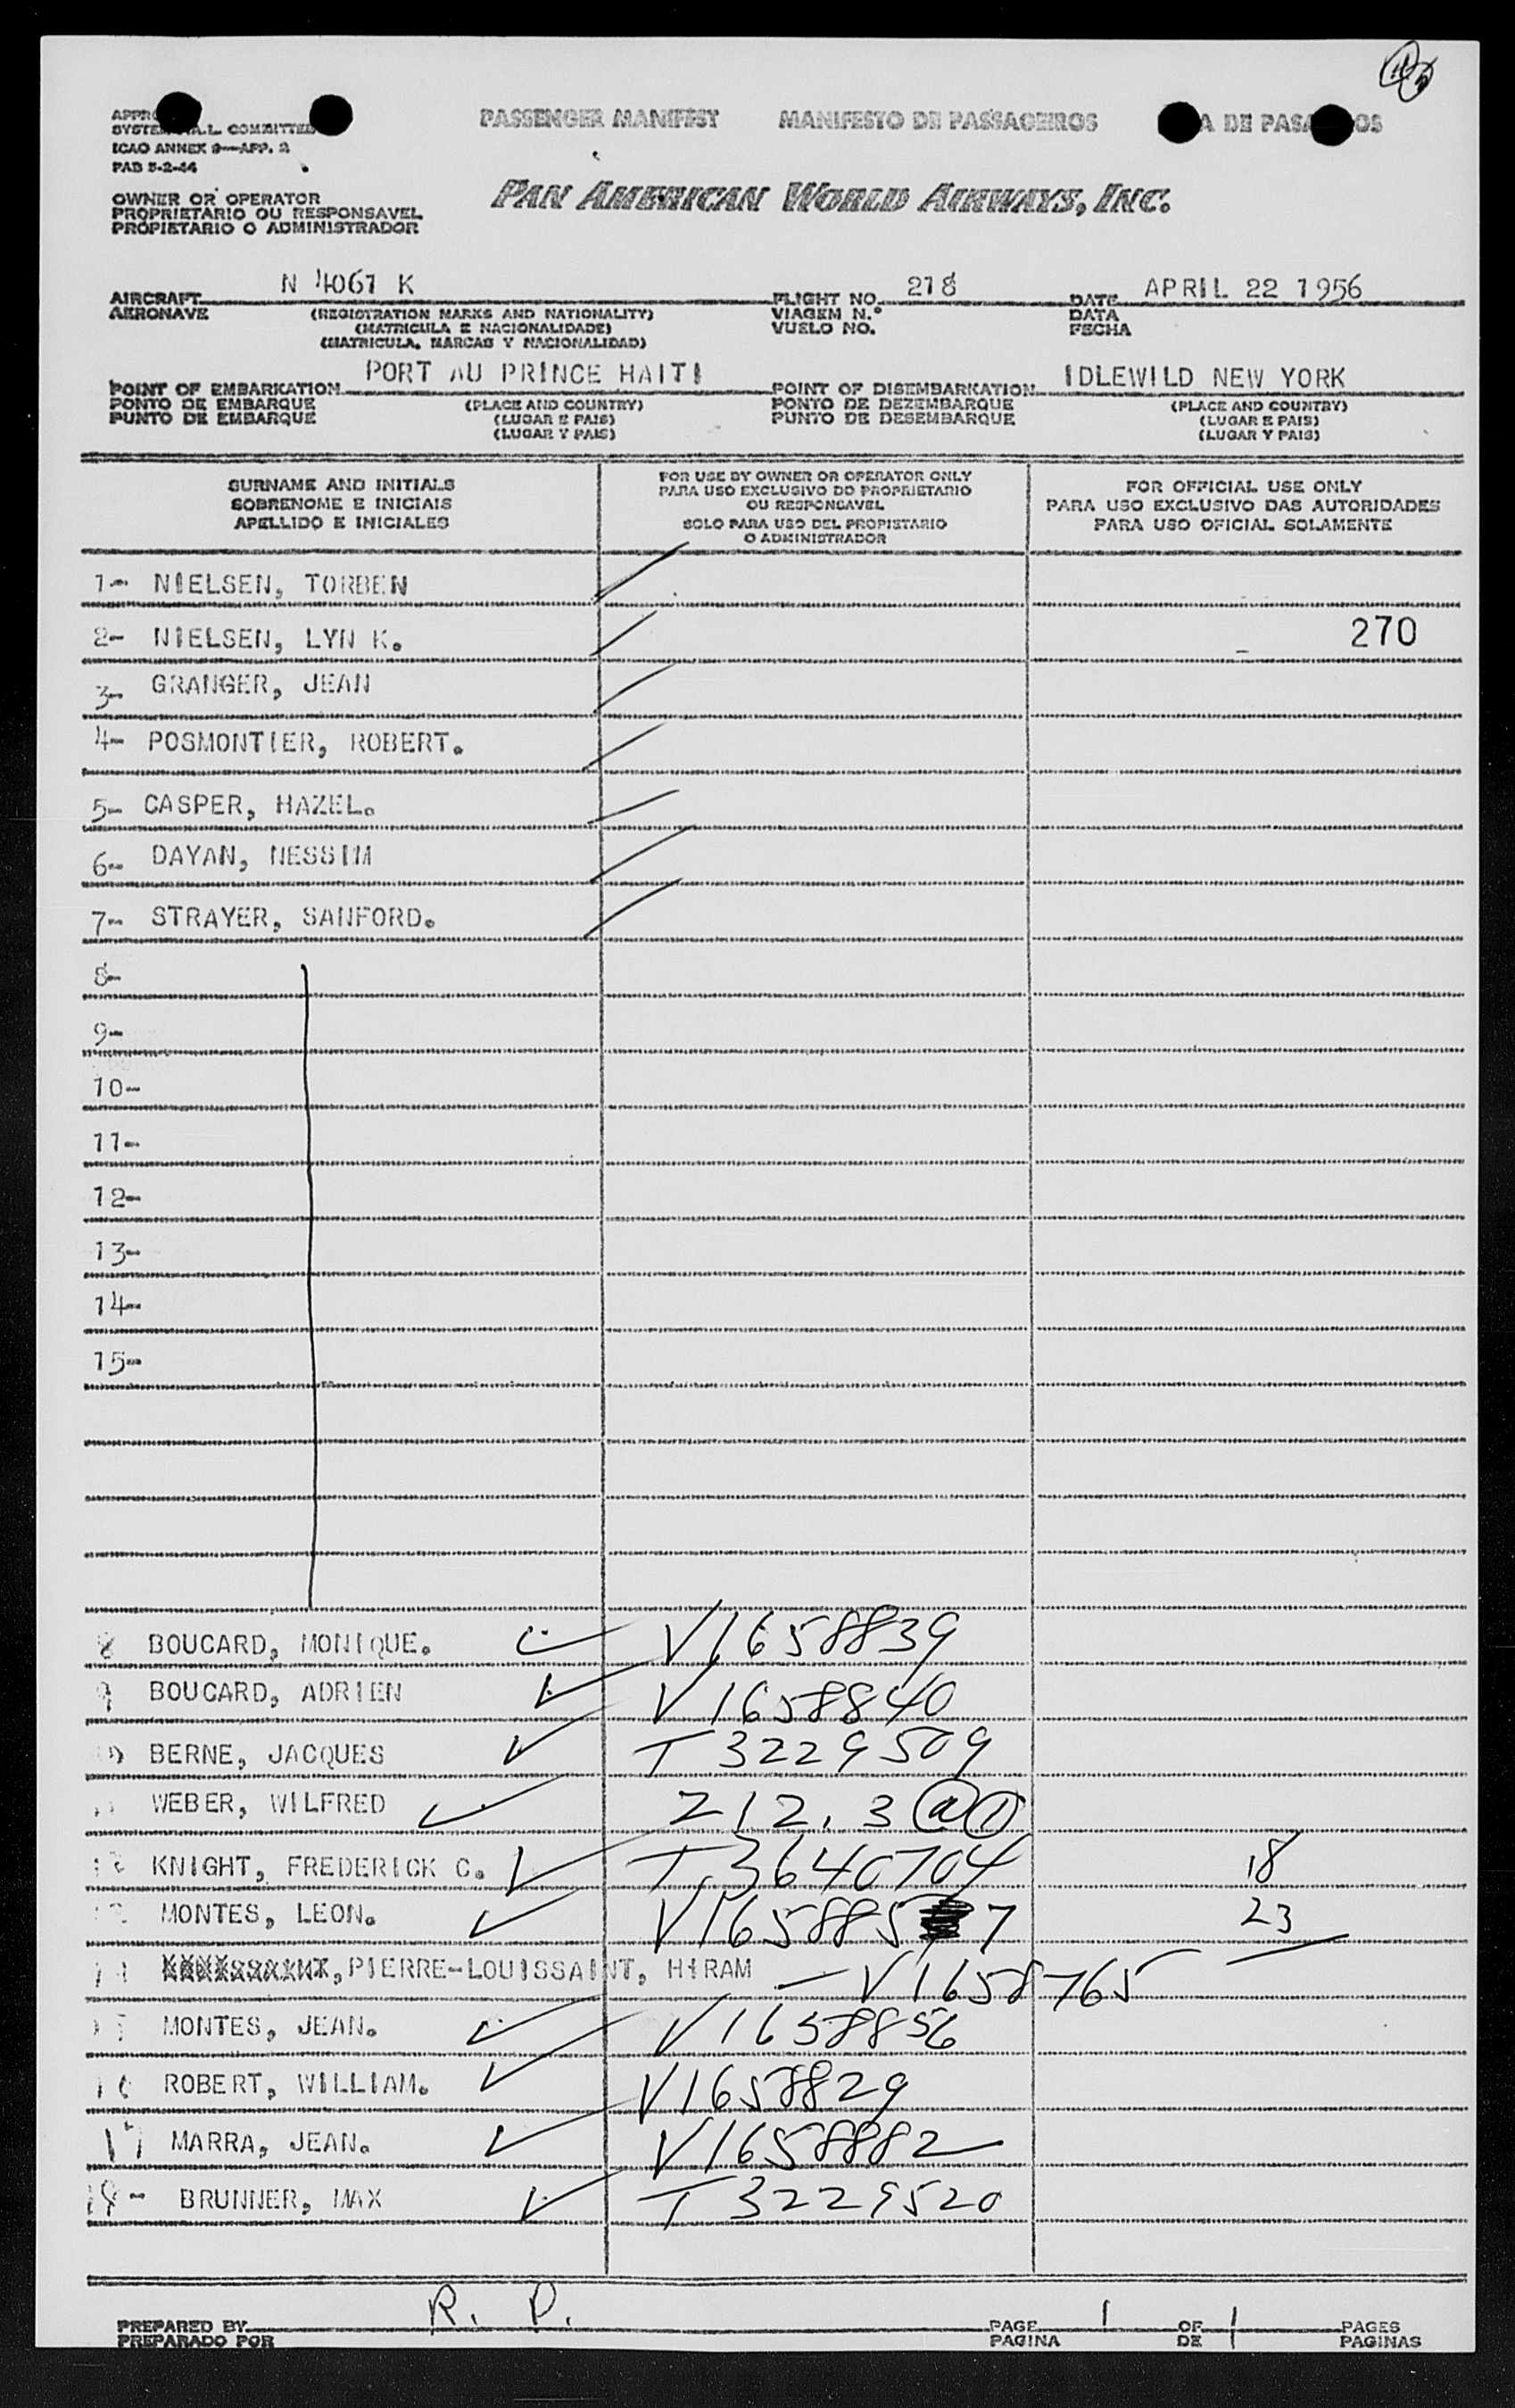 PASSENGER MANIFEST MANIFESTO DE PASSAGEIROS A DE PASA OS
SYSTEM A.L. COMMITTEE
ICAO ANNEX 9—APP. 2
PAD 5-2-44
OWNER OR OPERATOR
PROPRIETARIO OU RESPONSAVEL
PROPIETARIO O ADMINISTRADOR
PAN AMERICAN WORLD AIRWAYS, INC.
AIRCRAFT N 4061 K FLIGHT NO. 218 DATE APRIL 22 1956
AERONAVE (REGISTRATION MARKS AND NATIONALITY) VIAGEM N.° DATA
(MATRICULA E NACIONALIDADE) VUELO NO. FECHA
(MATRICULA, MARCAS Y NACIONALIDAD)
POINT OF EMBARKATION PORT AU PRINCE HAITI POINT OF DISEMBARKATION IDLEWILD NEW YORK
PONTO DE EMBARQUE (PLACE AND COUNTRY) PONTO DE DEZEMBARQUE (PLACE AND COUNTRY)
PUNTO DE EMBARQUE (LUGAR E PAIS) PUNTO DE DESEMBARQUE (LUGAR E PAIS)
(LUGAR Y PAIS) (LUGAR Y PAIS)
SURNAME AND INITIALS
SOBRENOME E INICIAIS
APELLIDO E INICIALES
FOR USE BY OWNER OR OPERATOR ONLY
PARA USO EXCLUSIVO DO PROPRIETARIO
OU RESPONSAVEL
SOLO PARA USO DEL PROPIETARIO
O ADMINISTRADOR
FOR OFFICIAL USE ONLY
PARA USO EXCLUSIVO DAS AUTORIDADES
PARA USO OFICIAL SOLAMENTE
1- NIELSEN, TORBEN
2- NIELSEN, LYN K. 270
3- GRANGER, JEAN
4- POSMONTIER, ROBERT.
5- CASPER, HAZEL.
6- DAYAN, NESSIM
7- STRAYER, SANFORD.
8-
9-
10-
11-
12-
13-
14-
15-
8 BOUCARD, MONIQUE. V1658839
9 BOUCARD, ADRIEN V1658840
10 BERNE, JACQUES T 3229509
11 WEBER, WILFRED 212.3 (a)(1)
12 KNIGHT, FREDERICK C. T 3640704 18
13 MONTES, LEON. V165885 7 23
14 PIERRE-LOUISSAINT, HIRAM — V1658765
15 MONTES, JEAN. V1658856
16 ROBERT, WILLIAM. V1658829
17 MARRA, JEAN. V1658882
18- BRUNNER, MAX T 3229520
PREPARED BY R. P. PAGE 1 OF 1 PAGES
PREPARADO POR PAGINA DE PAGINAS